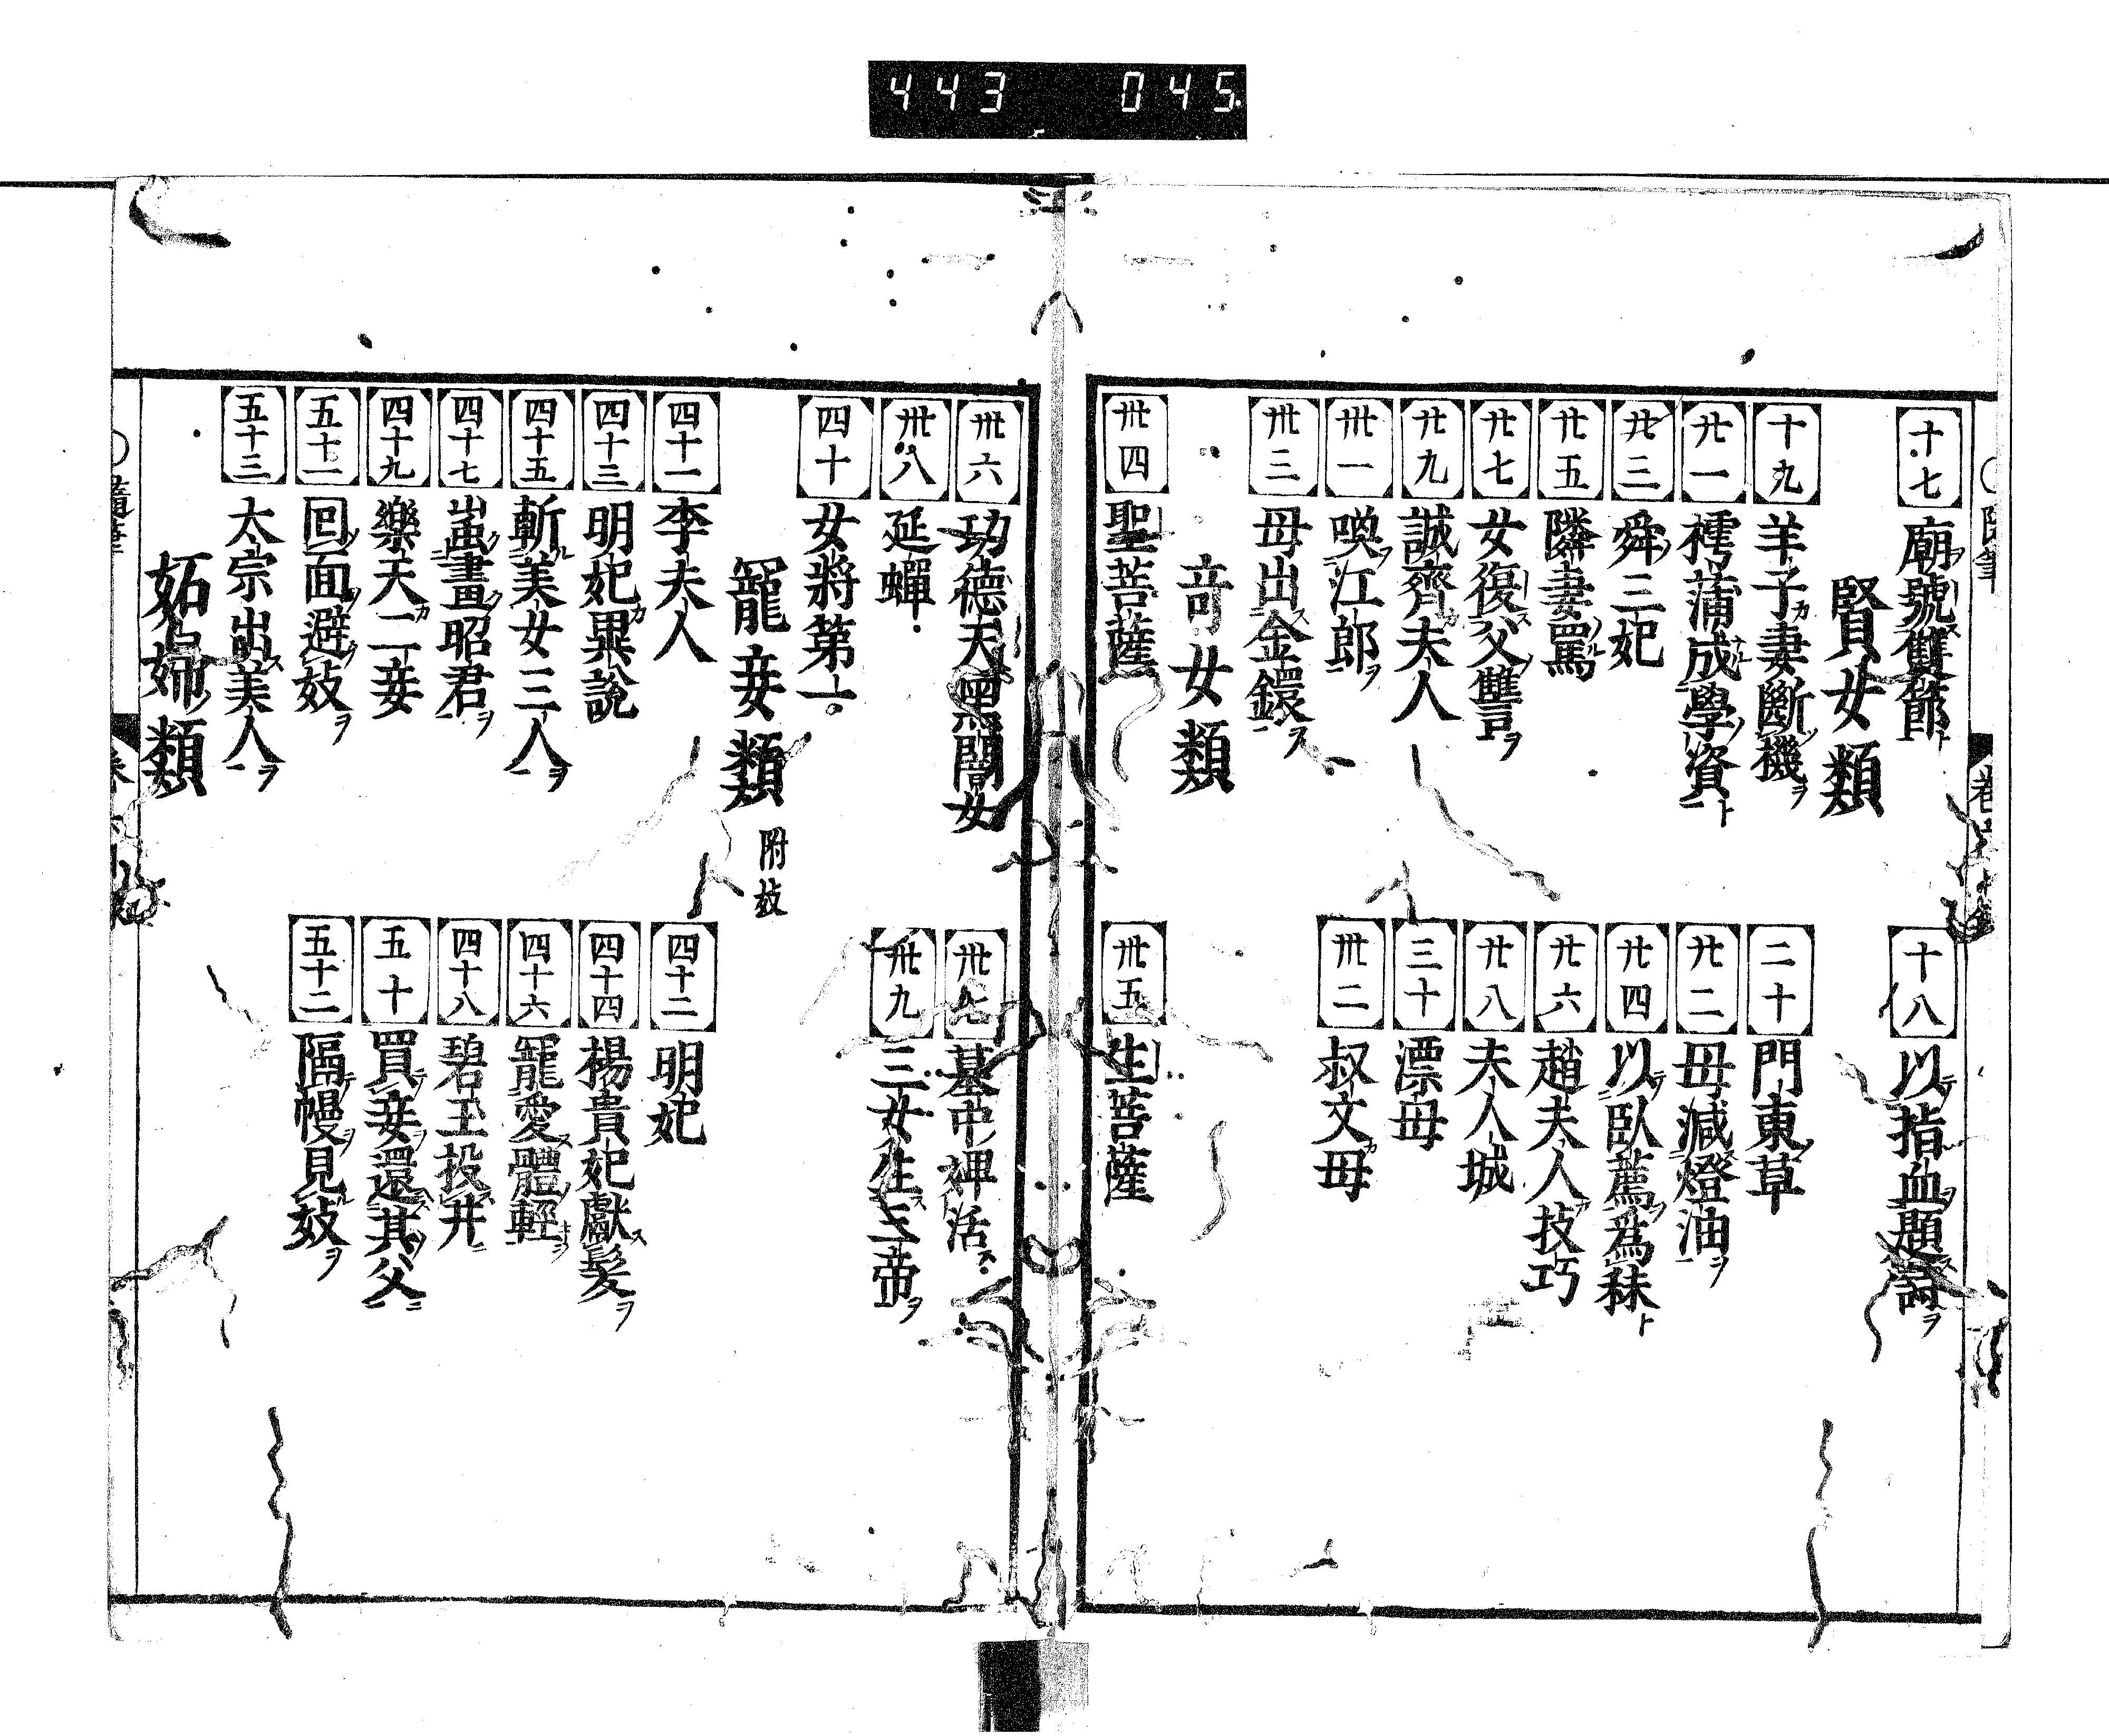 443 045
十七 廟號雙節
十八 以指血題詩ヲ
賢女類
十九 羊子カ妻斷機ヲ
二十 門東草
廿一 樗蒲成學資ト
廿二 毋減燈油ヲ
廿三 舜三妃
廿四 以臥薦爲秣ト
廿五 隣妻罵ル
廿六 趙夫人技巧
廿七 女復父讐ヲ
廿八 夫人城
廿九 誠齊夫人
三十 漂毋
卅一 喚江郎ヲ
卅二 叔文カ毋
卅三 毋出金鐶ヲ
竒女類
卅四 聖菩薩
卅五 生菩薩
卅六 功德天黑闇女
卅七 墓中婢活ス
卅八 延蟬
卅九 三女生三帝ヲ
四十 女將第一
寵妾類 附妓
四十一 李夫人
四十二 明妃
四十三 明妃カ異說
四十四 楊貴妃獻髪ヲ
四十五 斬美女三人ヲ
四十六 寵愛體輕ヲ
四十七 蚩畫昭君ヲ
四十八 碧玉投井ニ
四十九 樂天カ二妾
五十 買妾還其父ニ
五十一 回面避妓ヲ
五十二 隔幔見妓ヲ
五十三 太宗出美人ヲ
妬婦類
隨筆